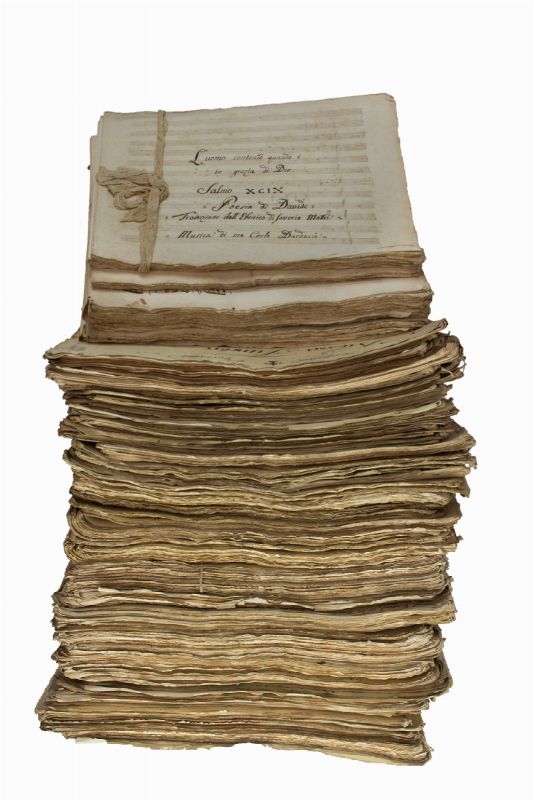 L'uomo contento quando è
in grazia di Dio
Salmo XCIX
Poesia di Davide
Traduzione dall'Ebraico di Saverio Mattei
Musica di me Carlo